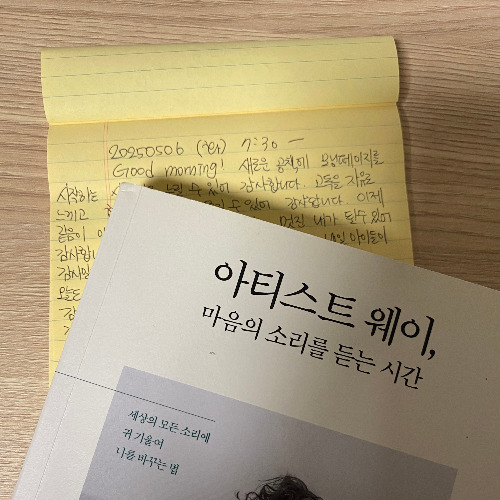 20250506 (화) 7:30 —
Good morning! 새로운 공책에 모닝페이지를
시작하는 수 있어 감사합니다. 고독을 자유로
느끼고 수 있어 감사합니다. 이제
같음이 멋진 내가 될 수 있어
감사합니 아이들이
감사입
오늘도
감
아티스트 웨이,
마음의 소리를 듣는 시간
세상의 모든 소리에
귀 기울여
나를 바꾸는 법